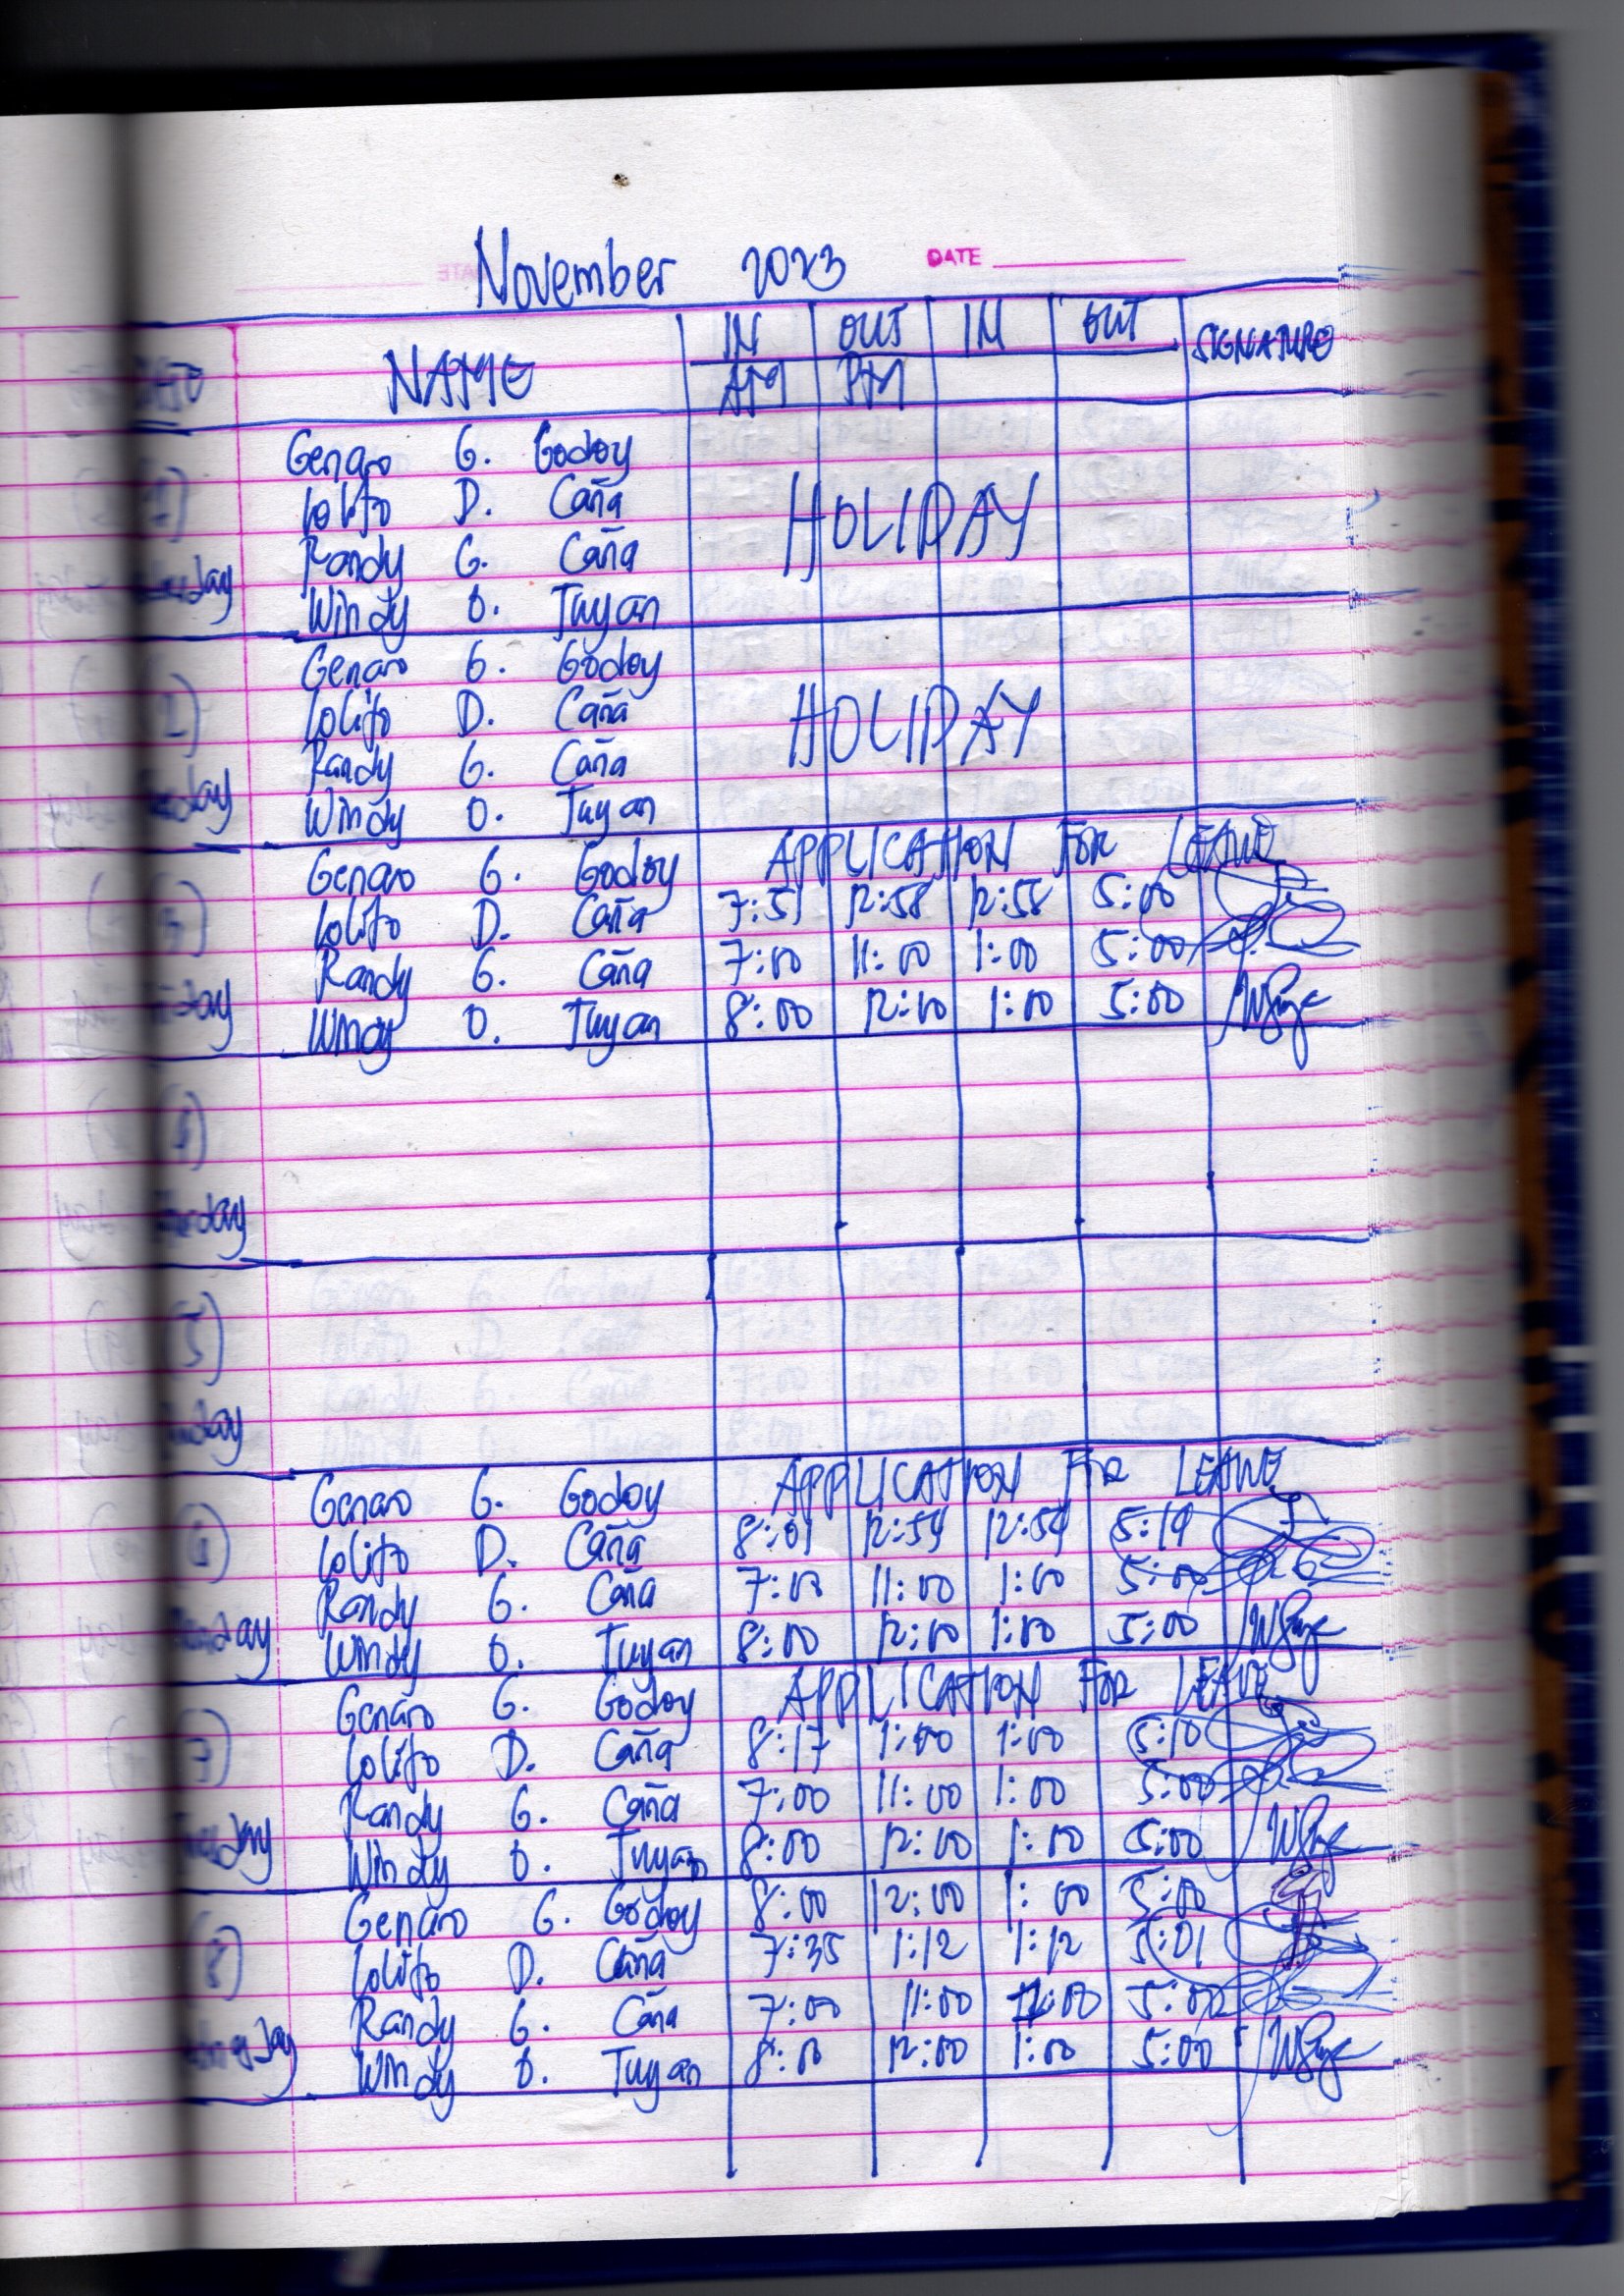 November 2023 DATE
NAME IN OUT IN OUT SIGNATURE
AM PM
Genaro G. Godoy
Lolito D. Caña HOLIDAY
Randy G. Caña
Windy O. Tuyan
Genaro G. Godoy
Lolito D. Caña HOLIDAY
Randy G. Caña
Windy O. Tuyan
Genaro G. Godoy APPLICATION FOR LEAVE
Lolito D. Caña 7:51 12:58 12:58 5:00
Randy G. Caña 7:00 11:00 1:00 5:00
Windy O. Tuyan 8:00 12:00 1:00 5:00
Genaro G. Godoy APPLICATION FOR LEAVE
Lolito D. Caña 8:01 12:59 12:59 5:19
Randy G. Caña 7:00 11:00 1:00 5:00
Windy O. Tuyan 8:00 12:00 1:00 5:00
Genaro G. Godoy APPLICATION FOR LEAVE
Lolito D. Caña 8:17 1:00 1:00 5:10
Randy G. Caña 7:00 11:00 1:00 5:00
Windy O. Tuyan 8:00 12:00 1:00 5:00
Genaro G. Godoy 8:00 12:00 1:00 5:00
Lolito D. Caña 7:35 1:12 1:12 5:01
Randy G. Caña 7:00 11:00 5:00
Windy O. Tuyan 8:00 12:00 1:00 5:00